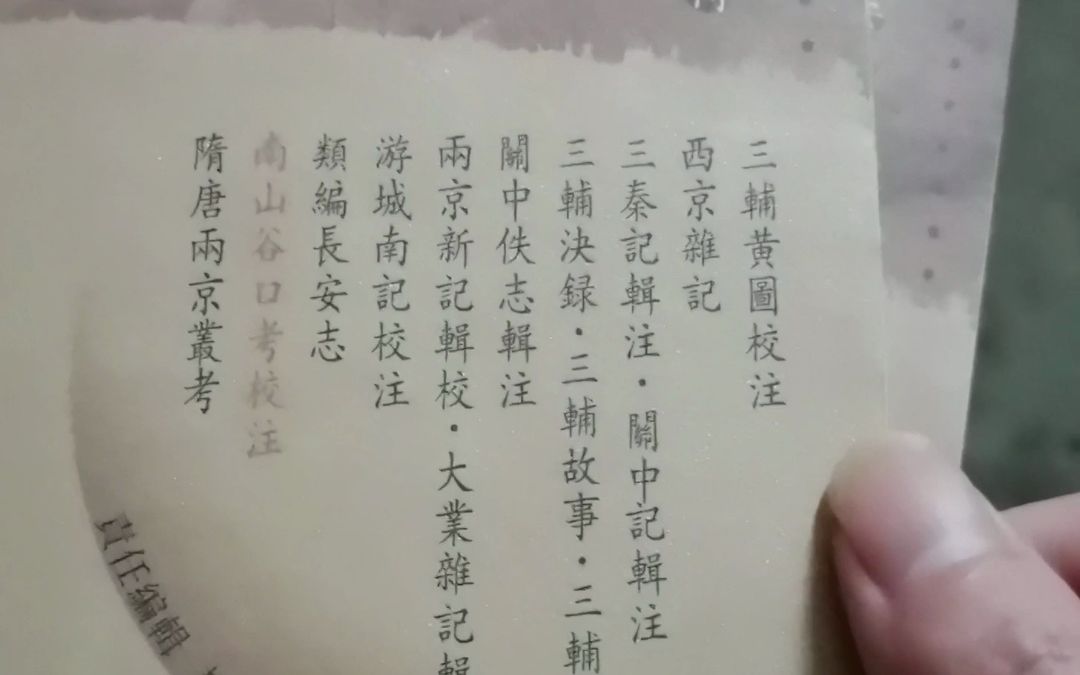 三輔黃圖校注
西京雜記
三秦記輯注·關中記輯注
三輔決録·三輔故事·三輔
關中佚志輯注
兩京新記輯校·大業雜記輯
游城南記校注
類編長安志
南山谷口考校注
隋唐兩京叢考
責任編輯